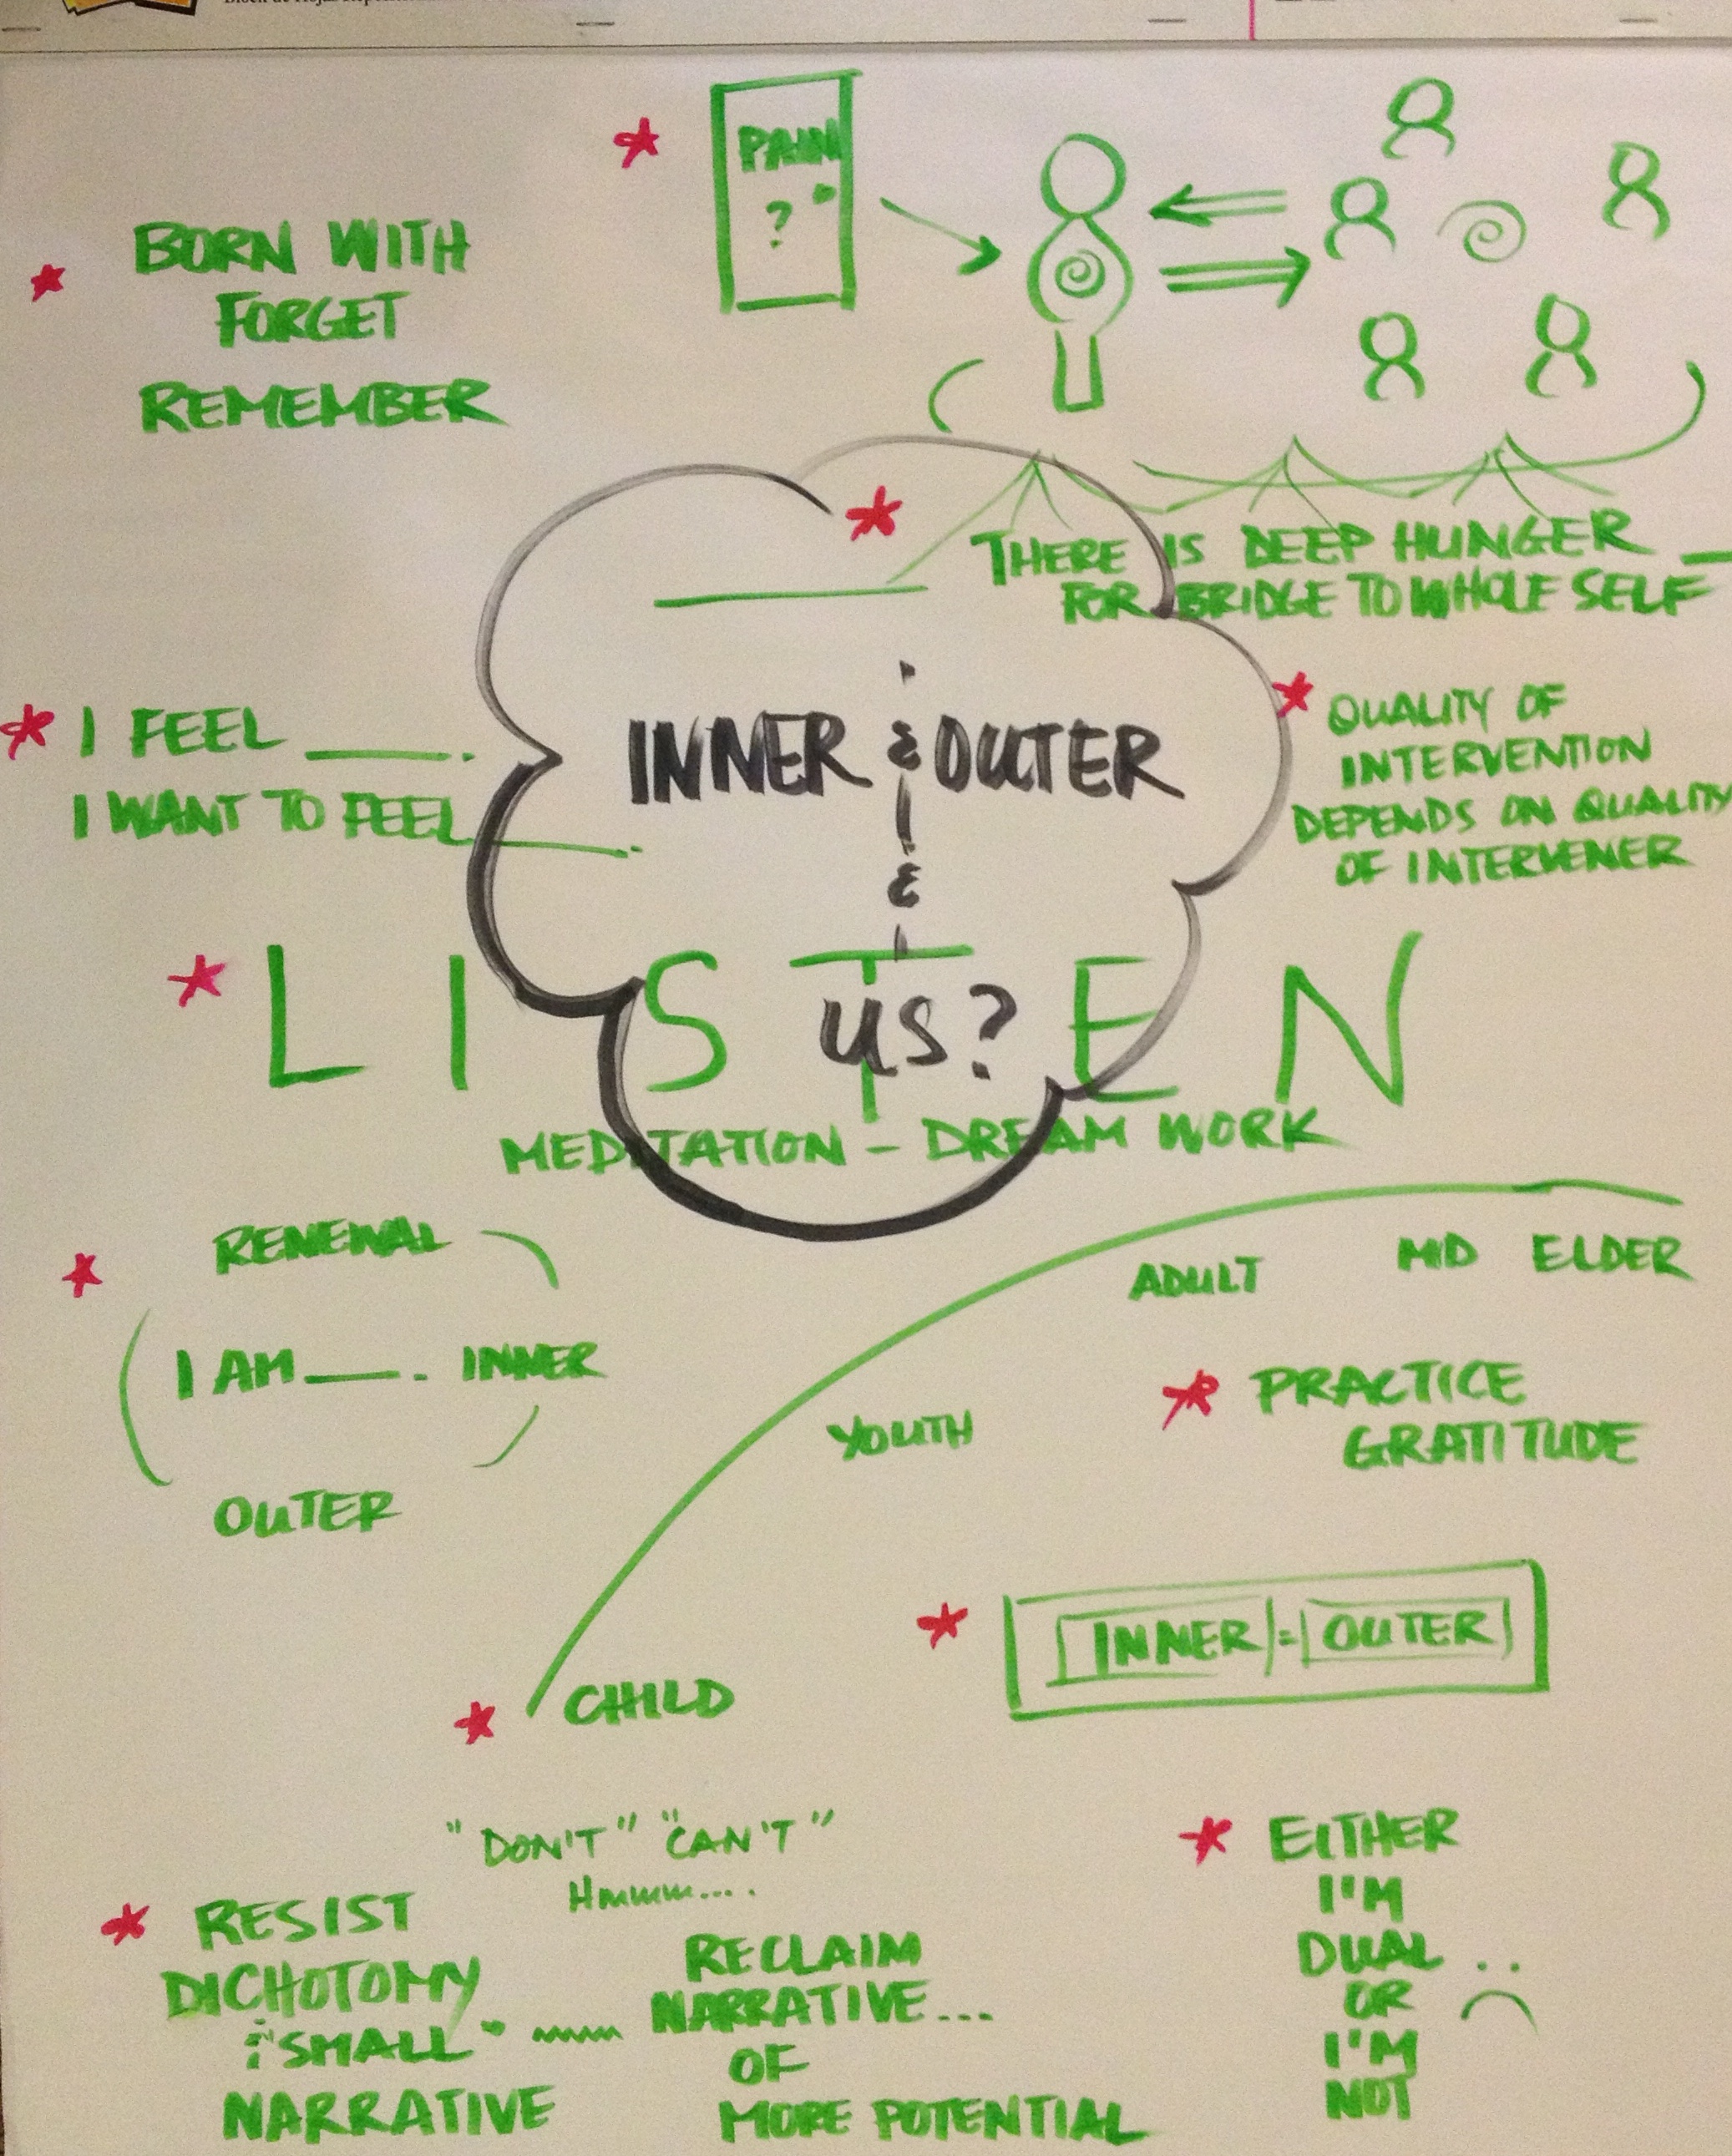 PAIN
?
BORN WITH
FORGET
REMEMBER
THERE IS DEEP HUNGER
FOR BRIDGE TO WHOLE SELF
INNER & OUTER
&
us?
I FEEL ____.
I WANT TO FEEL ____.
QUALITY OF
INTERVENTION
DEPENDS ON QUALITY
OF INTERVENER
LISTEN
MEDITATION - DREAM WORK
RENEWAL
I AM ____. INNER
OUTER
CHILD
YOUTH
ADULT
MID
ELDER
PRACTICE
GRATITUDE
INNER = OUTER
"DON'T" "CAN'T"
Hmmm....
RESIST
DICHOTOMY
"SMALL"
NARRATIVE
RECLAIM
NARRATIVE...
OF
MORE POTENTIAL
EITHER
I'M
DUAL
OR
I'M
NOT